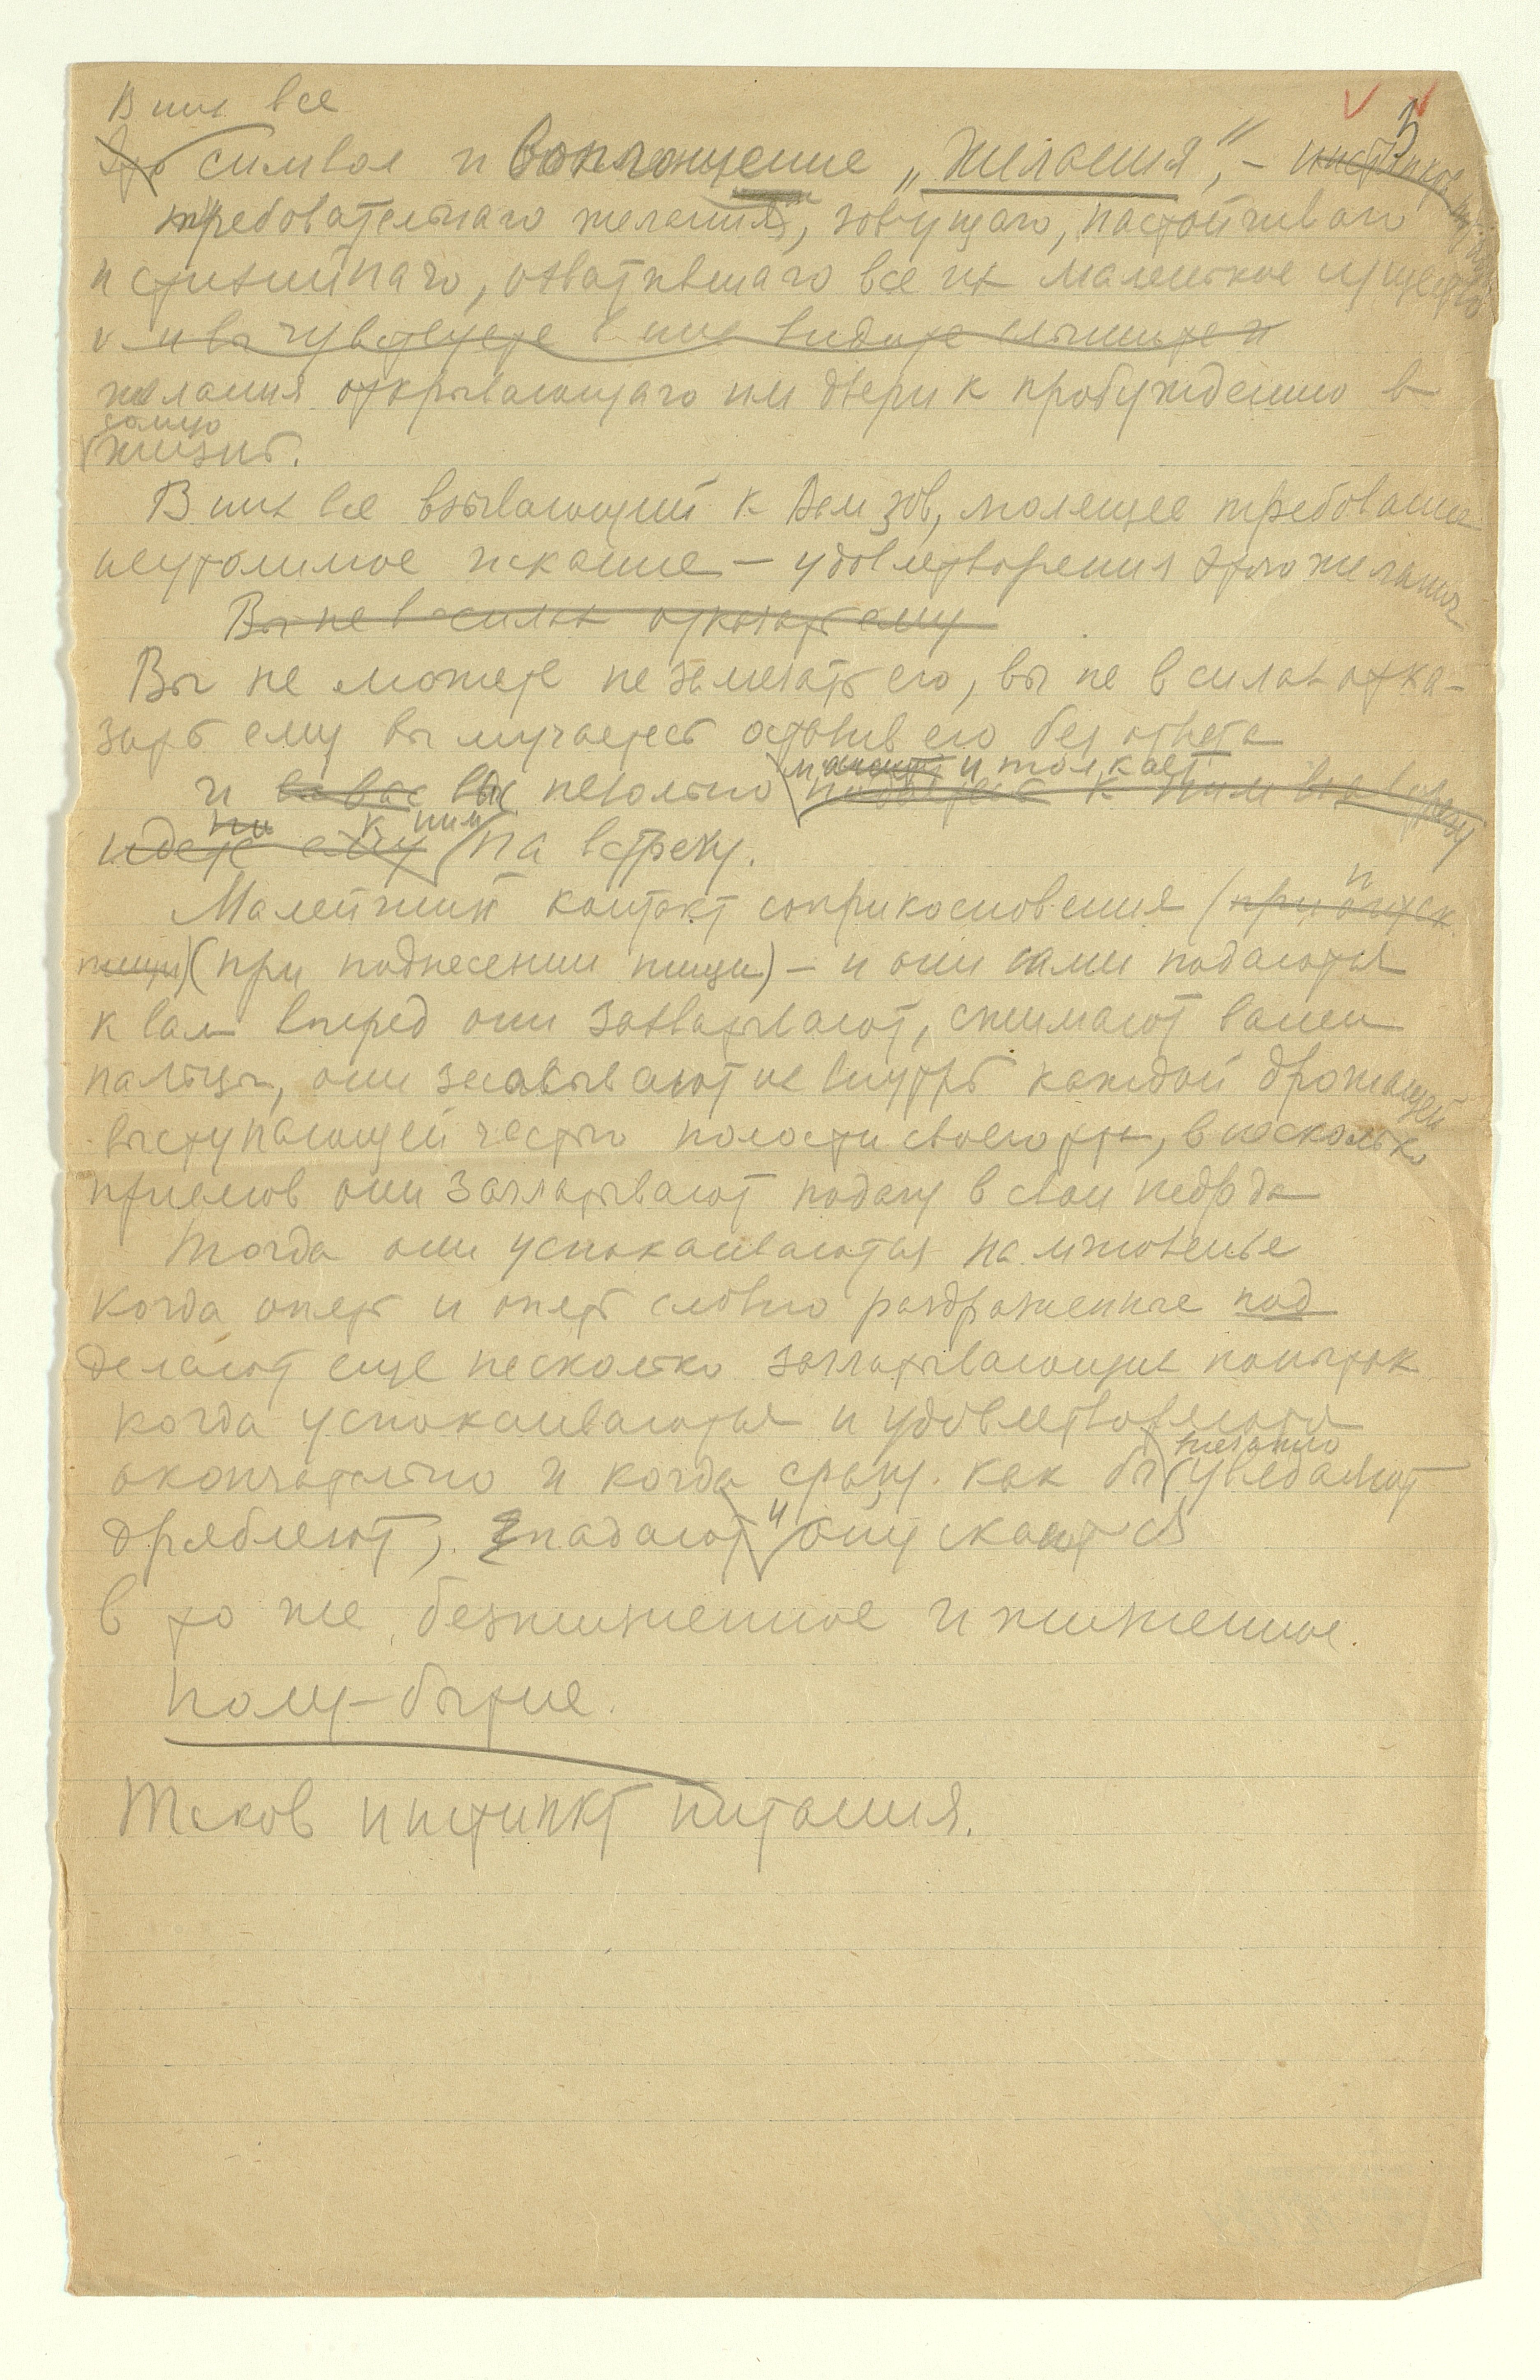 В них все
3
Это символ и воплощение „желания“, –
требовательнаго желания, зовущаго, настойчиваго
и стихийнаго, охватившаго все их маленькое существо
и вы чувствуете в них видите слышите и
желания открывающаго им двери к пробуждению в
самую
жизнь.
В них все взывающий к Вам зов, молящее требование
неутолимое искание – удовлетворения этого желания
Вы не в силах отказать ему
Вы не можете не замечать его, вы не в силах отка-
зать ему вы мучаетесь оставив его без ответа
манит и толкает
и вас невольно к ним на встречу
к ним
идете ему на встречу.
Малейший контакт соприкосновения (при
пищи) (при поднесении пищи) – и они сами подаются
к вам вперед они захватывают, сжимают ваши
пальцы, они засасывают их внутрь каждой дрожащей
выступающей частью полости своего рта, в несколько
приемов они заглатывают подачу в свои недра
Тогда они успокаиваются на мгновенье
когда опять и опять словно раздраженные под
делают еще несколько заглатывающих попыток
когда успокаиваются и удовлетворяются
внезапно
окончательно и когда сразу как бы увядают
дряблеют, спадают и опускаются
в то же безжизненное и жизненное
полу-бытие.
Таков инстинкт питания.